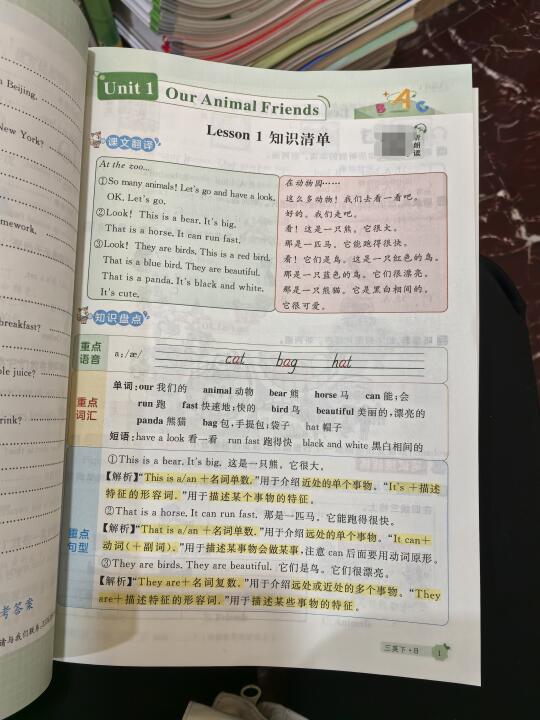 n Beijing.
New York?
mework.
breakfast?
le juice?
rink?
考答案
Unit 1 Our Animal Friends
A
B C
Lesson 1 知识清单
听
朗读
课文翻译
At the zoo...
①So many animals! Let's go and have a look.
OK. Let's go.
②Look! This is a bear. It's big.
That is a horse. It can run fast.
③Look! They are birds. This is a red bird.
That is a blue bird. They are beautiful.
That is a panda. It's black and white.
It's cute.
在动物园……
这么多动物！我们去看一看吧。
好的。我们走吧。
看！这是一只熊。它很大。
那是一匹马。它能跑得很快。
看！它们是鸟。这是一只红色的鸟。
那是一只蓝色的鸟。它们很漂亮。
那是一只熊猫。它是黑白相间的。
它很可爱。
知识盘点
重点语音
a:/æ/ cat bag hat
重点词汇
单词:our 我们的 animal 动物 bear 熊 horse 马 can 能;会
run 跑 fast 快速地;快的 bird 鸟 beautiful 美丽的;漂亮的
panda 熊猫 bag 包,手提包;袋子 hat 帽子
短语:have a look 看一看 run fast 跑得快 black and white 黑白相间的
重点句型
①This is a bear. It's big. 这是一只熊。它很大。
【解析】“This is a/an＋名词单数.”用于介绍近处的单个事物。“It's＋描述
特征的形容词.”用于描述某个事物的特征。
②That is a horse. It can run fast. 那是一匹马。它能跑得很快。
【解析】“That is a/an＋名词单数.”用于介绍远处的单个事物。“It can＋
动词(＋副词).”用于描述某事物会做某事,注意 can 后面要用动词原形。
③They are birds. They are beautiful. 它们是鸟。它们很漂亮。
【解析】“They are＋名词复数.”用于介绍远处或近处的多个事物。“They
are＋描述特征的形容词.”用于描述某些事物的特征。
三英下·B 1